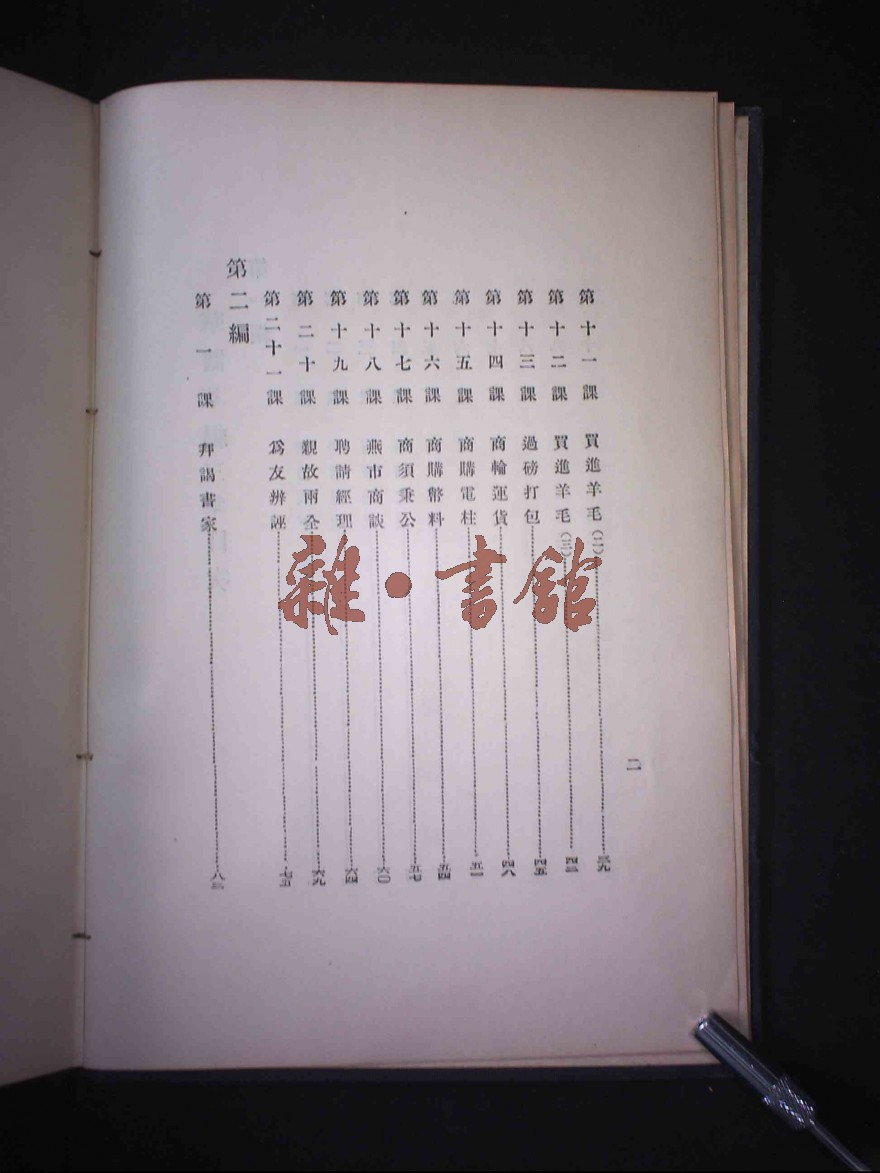 二
第十一課 買進羊毛(二)……三九
第十二課 買進羊毛(三)……四二
第十三課 過磅打包……四五
第十四課 商輪運貨……四八
第十五課 商購電柱……五一
第十六課 商購幣料……五四
第十七課 商須秉公……五七
第十八課 燕市商談……六〇
第十九課 聘請經理……六四
第二十課 親故兩全……六九
第二十一課 爲友辨誣……七五
第二編
第一課 拜謁書家……八三
雜·書館